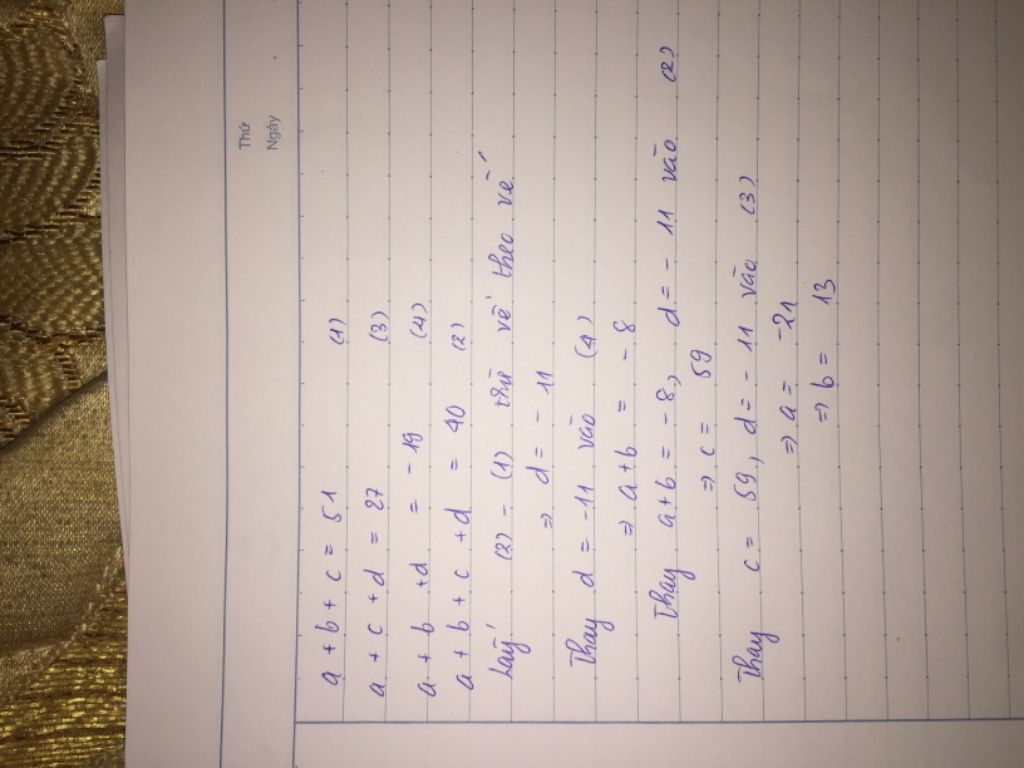 Thứ
Ngày
a + b + c = 51 (1)
a + c + d = 27 (3)
a + b + d = - 19 (4)
a + b + c + d = 40 (2)
Lấy (2) - (1) trừ vế theo vế
=> d = - 11
Thay d = -11 vào (4)
=> a + b = - 8
Thay a + b = - 8, d = - 11 vào (2)
=> c = 59
Thay c = 59, d = - 11 vào (3)
=> a = -21
=> b = 13